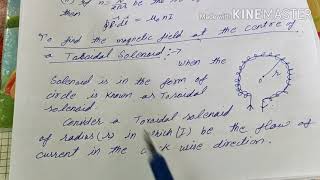 then
∮B⃗.dl⃗ = μ₀nI
Made with KINEMASTER
To find the magnetic field at the centre of
a Toroidal Solenoid :-
when the
Solenoid is in the form of
circle is known as Toroidal
solenoid.
r
I
Consider a Toroidal solenoid
of radius (r) in which (I) be the flow of
current in the clock wise direction.